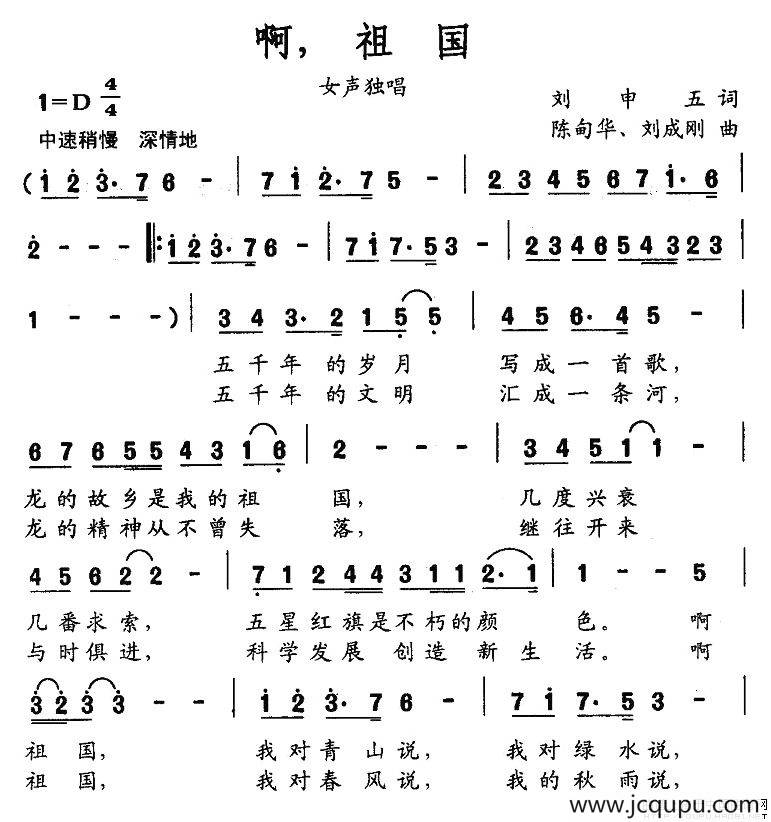 啊，祖国
女声独唱
1=D 4/4
刘申五词
中速稍慢 深情地
陈甸华、刘成刚 曲
(1 2 3· 7 6 - | 7 1 2· 7 5 - | 2 3 4 5 6 7 1· 6 |
2 - - - |: 1 2 3· 7 6 - | 7 1 7· 5 3 - | 2 3 4 6 5 4 3 2 3 |
1 - - - ) | 3 4 3· 2 1 5 5 | 4 5 6· 4 5 - |
五千年 的岁月 写成一首歌，
五千年 的文明 汇成一条河，
6 7 6 5 5 4 3 1 6 | 2 - - | 3 4 5 1 1 - |
龙的故乡是我的祖 国， 几度兴衰
龙的精神从不曾失 落， 继往开来
4 5 6 2 2 - | 7 1 2 4 4 3 1 1 2· 1 | 1 - - 5 |
几番求索， 五星红旗是不朽的颜 色。 啊
与时俱进， 科学发展 创造 新生 活。 啊
3 2 3 3 - - | 1 2 3· 7 6 - | 7 1 7· 5 3 - |
祖 国， 我对青山说， 我对绿水说，
祖 国， 我对春风说， 我的秋雨说，
www.jcqupu.com